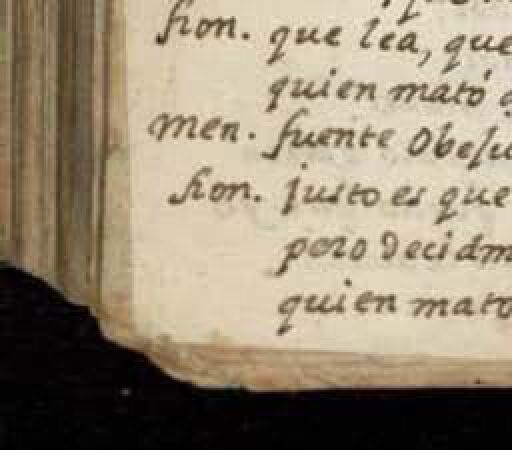 fion. que lea, que
quien mató
men. fuente Obeju
fion. justo es que
pero decidm
quien mato